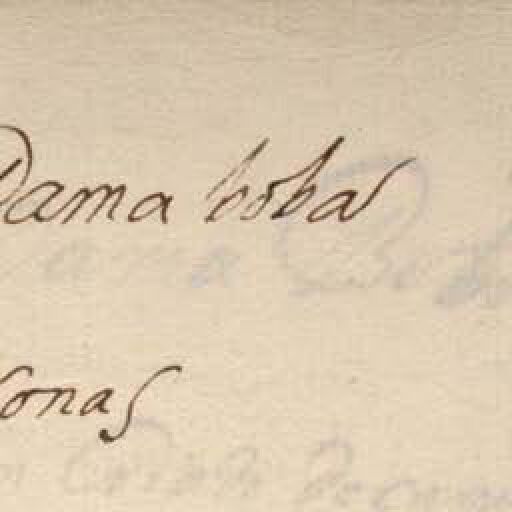 Dama boba
sonas